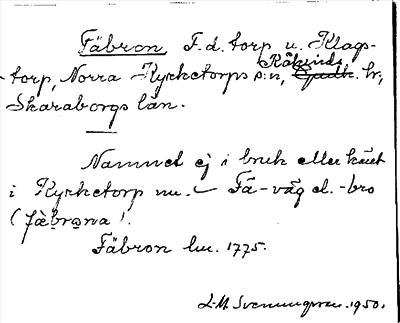 Fäbron F. d. torp u. Klags-
torp, Norra Kyrketorps s:n, Kåkinds hr,
Skaraborgs län.
Namnet ej i bruk eller känt
i Kyrketorp nu. – Fä-väg el. -bro
(fæ̀brona).
Fäbron lm. 1775.
L-M. Svenungsson. 1950.